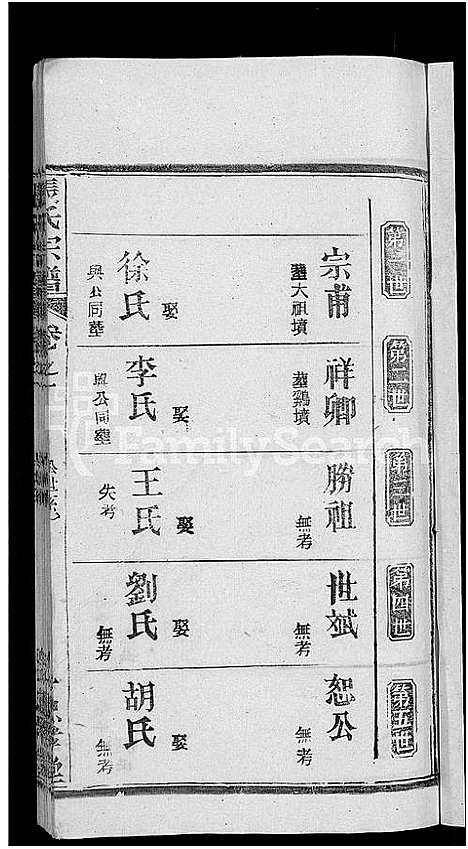 第一世
第二世
第三世
第四世
第五世
宗甫
葬大祖墳
娶
徐氏
與公同塟
祥卿
葬鷄墳
娶
李氏
與公同塟
勝祖
無考
娶
王氏
失考
世斌
無考
娶
劉氏
無考
恕公
無考
娶
胡氏
無考
張氏宗譜
卷之一
FamilySearch